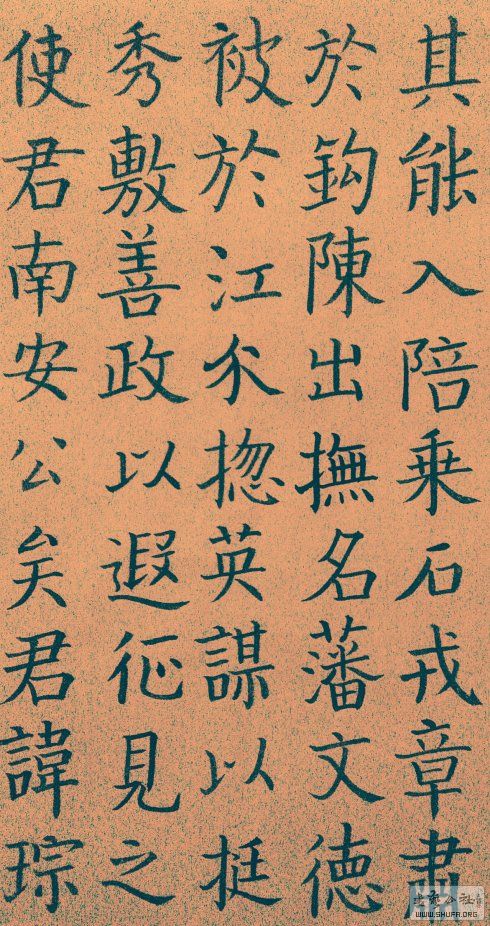 其能入陪乗石戎章肅
於鈎陳出撫名藩文德
被於江介揔英謀以挺
秀敷善政以遐征見之
使君南安公矣君諱琮
WWW.SHUFA.ORG